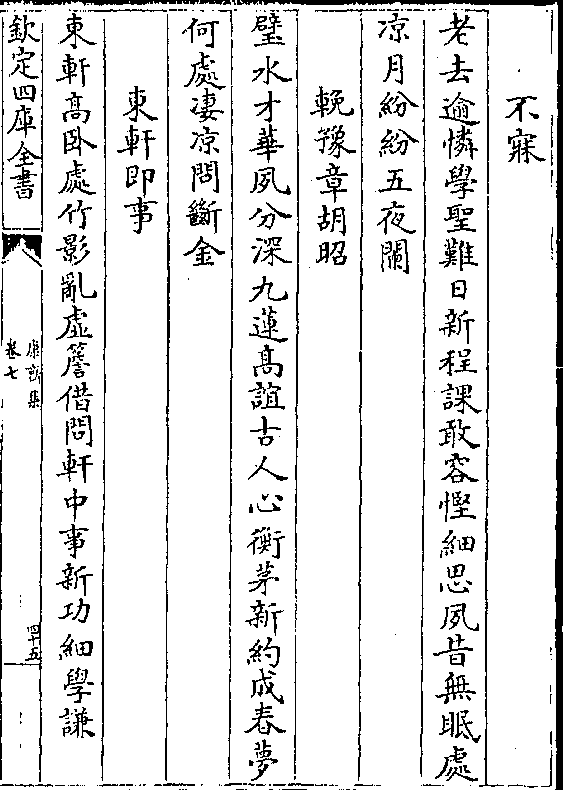 不寐
老去逾憐學聖難日新程課敢容慳細思夙昔無眠處
凉月紛紛五夜闌
輓豫章胡昭
璧水才華夙分深九蓮髙誼古人心衡茅新約成春夢
何處凄凉問斷金
東軒即事
東軒髙卧處竹影亂虚簷借問軒中事新功細學謙
欽定四庫全書
康齋集
卷七
四十五